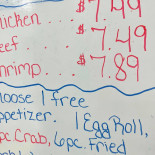 hicken... $7.49
eef... $7.49
hrimp... $7.89
hoose 1 free
ppetizer. 1 Egg Roll,
pc Crab, 6 pc. Fried